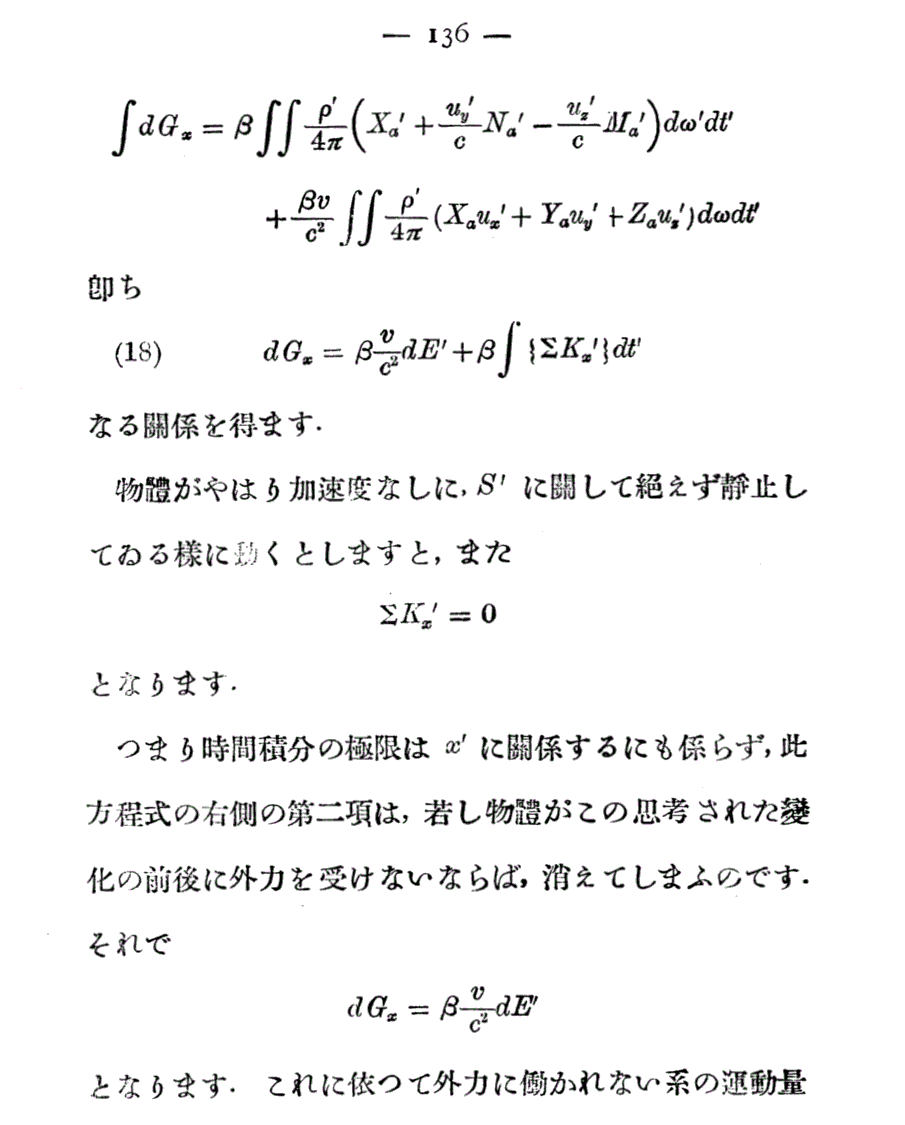 — 136 —
∫dGₓ = β∬ρ'/4π(Xₐ' + u_y'/c Nₐ' − u_z'/c Mₐ')dω'dt'
+ βv/c² ∬ρ'/4π(Xₐuₓ' + Yₐu_y' + Zₐu_z')dωdt'
卽ち
(18) dGₓ = β v/c² dE' + β∫{ΣKₓ'}dt'
なる關係を得ます.
物體がやはり加速度なしに, S' に關して絕えず靜止し
てゐる樣に動くとしますと, また
ΣKₓ' = 0
となります.
つまり時間積分の極限は x' に關係するにも係らず, 此
方程式の右側の第二項は, 若し物體がこの思考された變
化の前後に外力を受けないならば, 消えてしまふのです.
それで
dGₓ = β v/c² dE'
となります. これに依つて外力に働かれない系の運動量